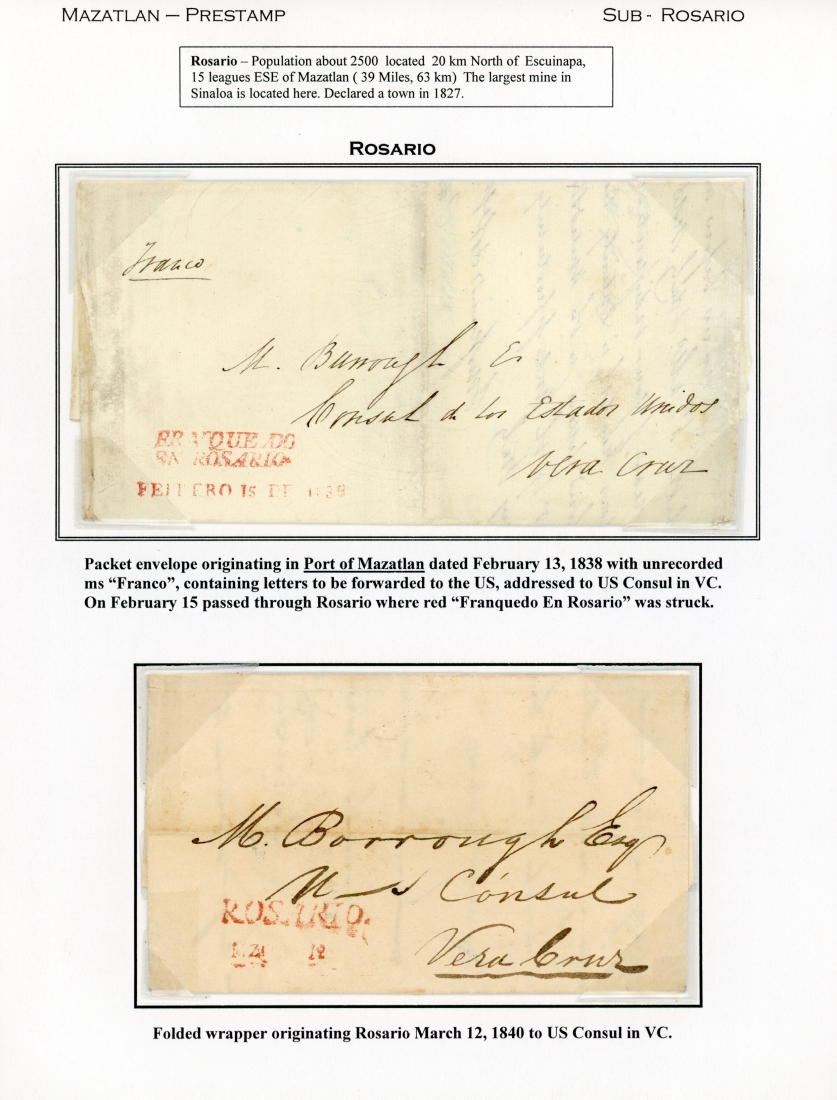 MAZATLAN – PRESTAMP
SUB - ROSARIO
Rosario – Population about 2500 located 20 km North of Escuinapa,
15 leagues ESE of Mazatlan ( 39 Miles, 63 km) The largest mine in
Sinaloa is located here. Declared a town in 1827.
ROSARIO
Franco
M. Burrough E
Consul de los Estados Unidos
Vera Cruz
FRANQUEADO
EN ROSARIO
FEBRERO 15 DE 1838
Packet envelope originating in Port of Mazatlan dated February 13, 1838 with unrecorded
ms “Franco”, containing letters to be forwarded to the US, addressed to US Consul in VC.
On February 15 passed through Rosario where red “Franquedo En Rosario” was struck.
M. Borrough Esq
U S Consul
ROSARIO.
Vera Cruz
Folded wrapper originating Rosario March 12, 1840 to US Consul in VC.